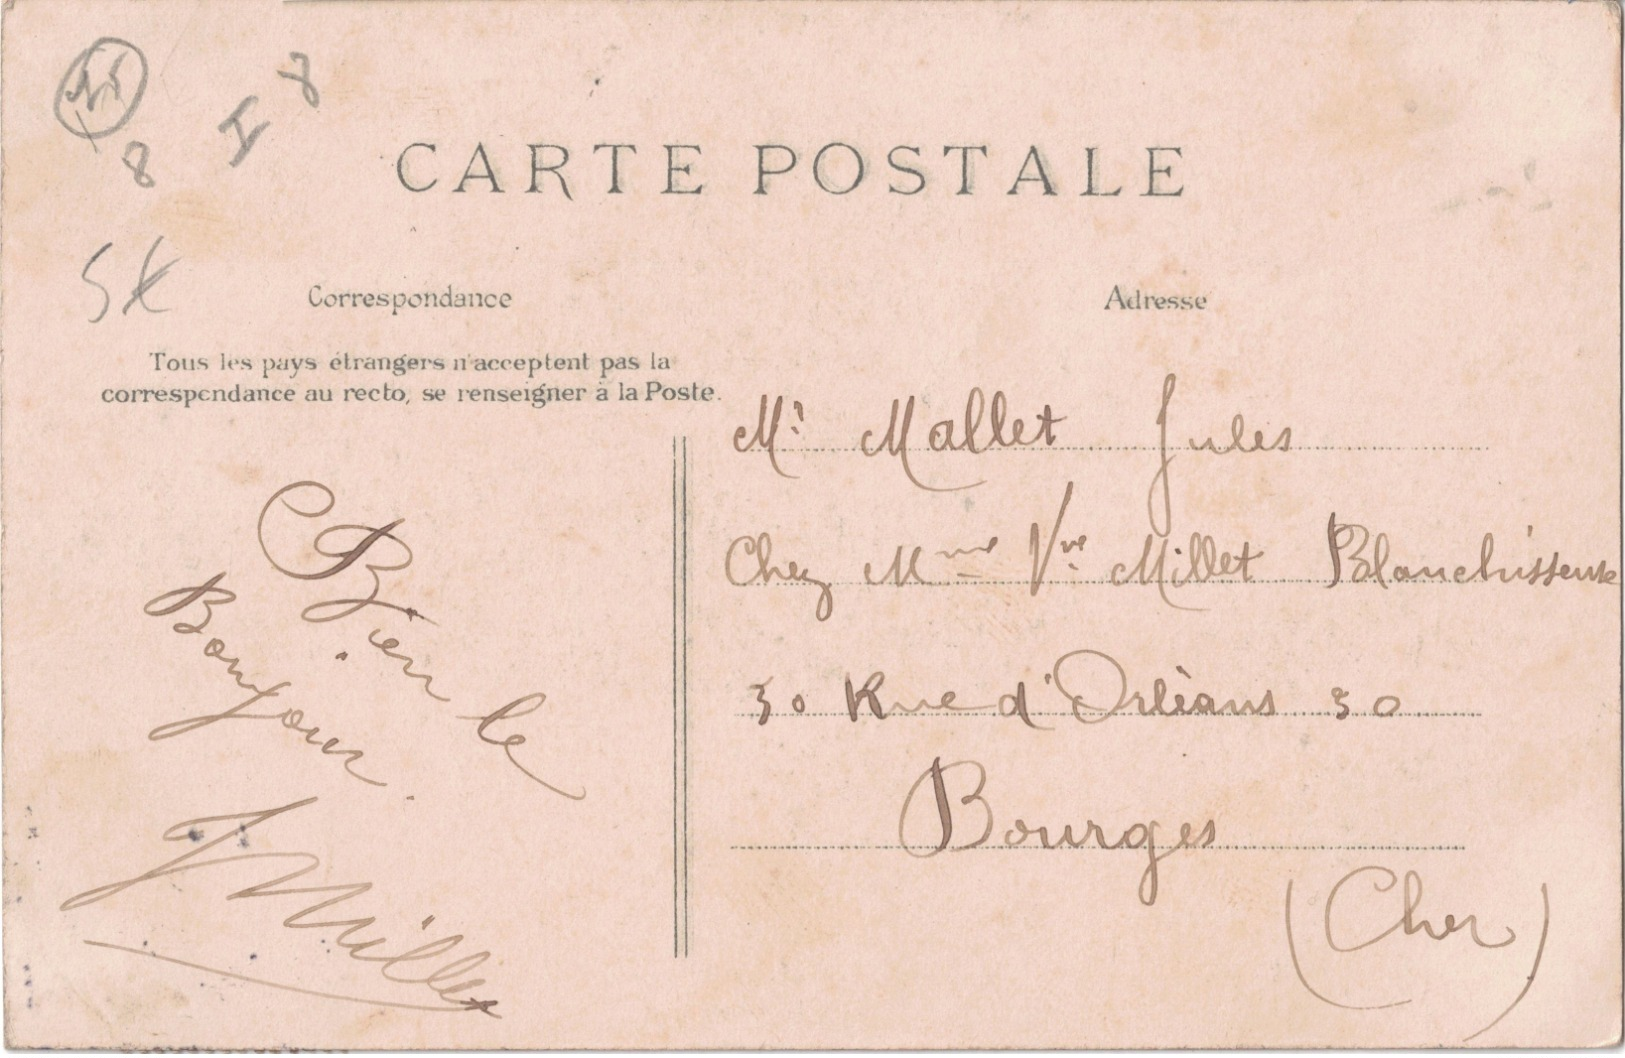 8
I 8
CARTE POSTALE
Correspondance
Adresse
Tous les pays étrangers n'acceptent pas la
correspondance au recto, se renseigner à la Poste.
Bien le
Bonjour.
J Millet
Mr Mallet Jules
Chez Mme Vve Millet Blanchisseuse
30 Rue d'Orléans 30
Bourges
(Cher)